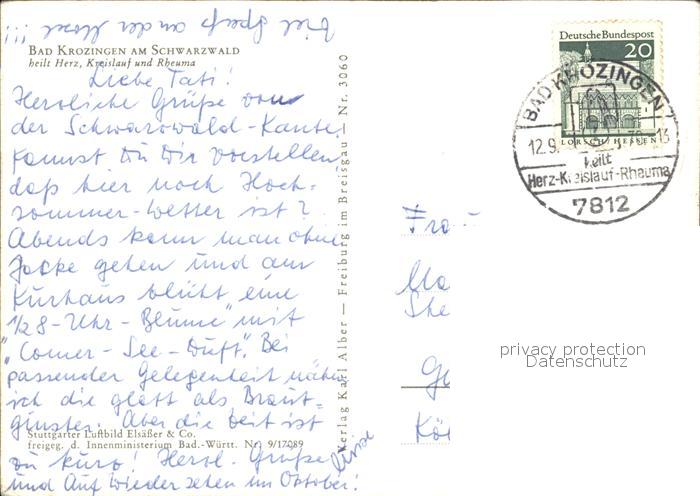 viel Spaß an der Mosel !!!
BAD KROZINGEN AM SCHWARZWALD
heilt Herz, Kreislauf und Rheuma
Liebe Tati!
Herzliche Grüße von
der Schwarzwald-Kante.
Kannst Du Dir vorstellen
daß hier noch Hoch-
sommer-Wetter ist?
Abends kann man ohne
Jacke gehen und am
Kurhaus blüht eine
"1/2 8-Uhr-Blume" mit
"Comer-See-Duft". Bei
passender Gelegenheit nähme
ich die glatt als Braut-
ginster. Aber die Zeit ist
Stuttgarter Luftbild Elsäßer & Co.
freigeg. d. Innenministerium Bad.-Württ. Nr. 9/17089
zu kurz! Herzl. Grüße
und Auf Wiedersehen im Oktober!
Verlag Karl Alber — Freiburg im Breisgau — Nr. 3060
Deutsche Bundespost
20
LORSCH/HESSEN
BAD KROZINGEN
12.9. 70-13
heilt
Herz-Kreislauf-Rheuma
7812
Fra
Ma
She
Kö
privacy protection
Datenschutz